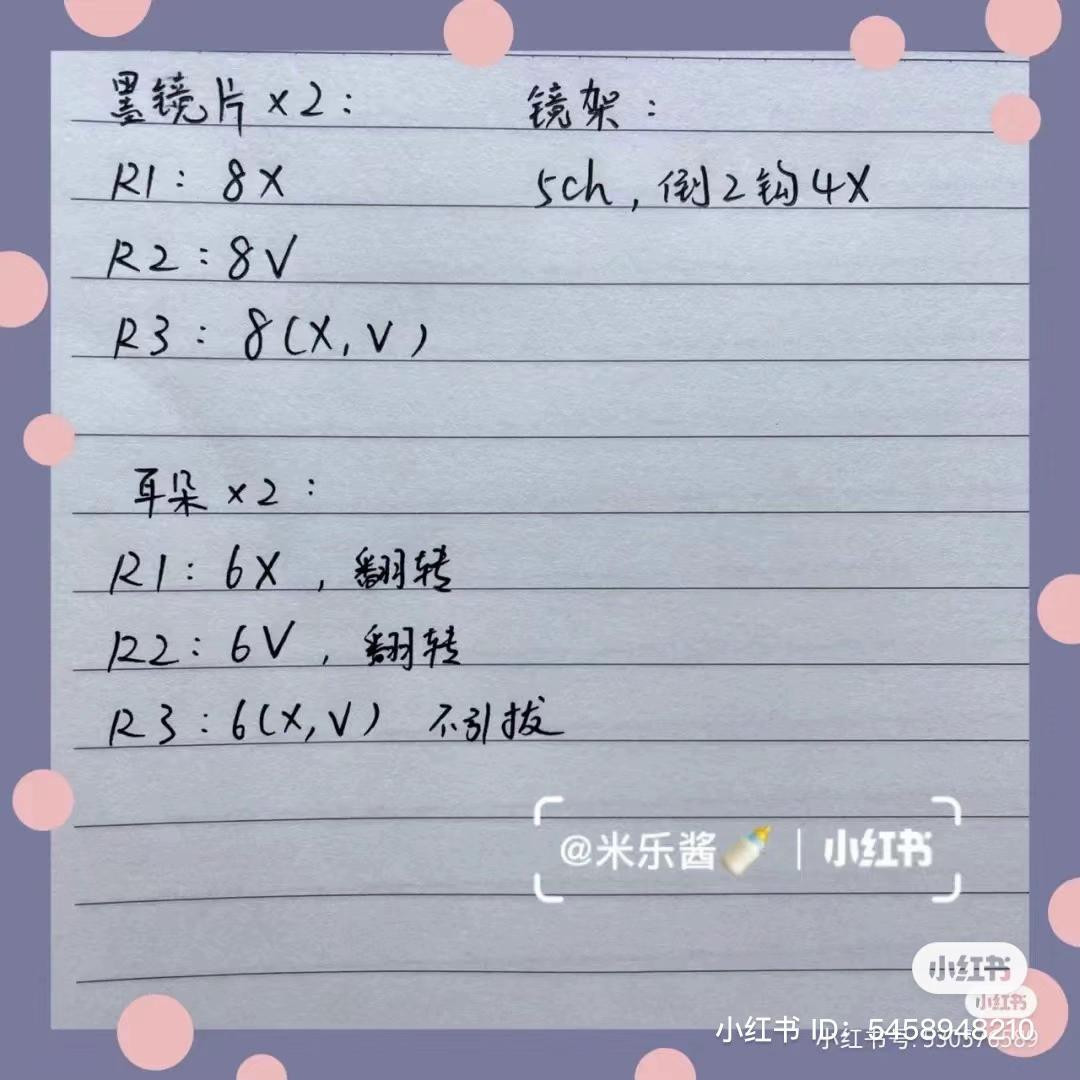 墨镜片 x2：
R1：8X
R2：8V
R3：8(X, V)
镜架：
5ch，倒2钩4X
耳朵 x2：
R1：6X，翻转
R2：6V，翻转
R3：6(X, V) 不引拔
@米乐酱🍼 | 小红书
小红书
小红书
小红书 ID：5458948210
小红书号: 530576589